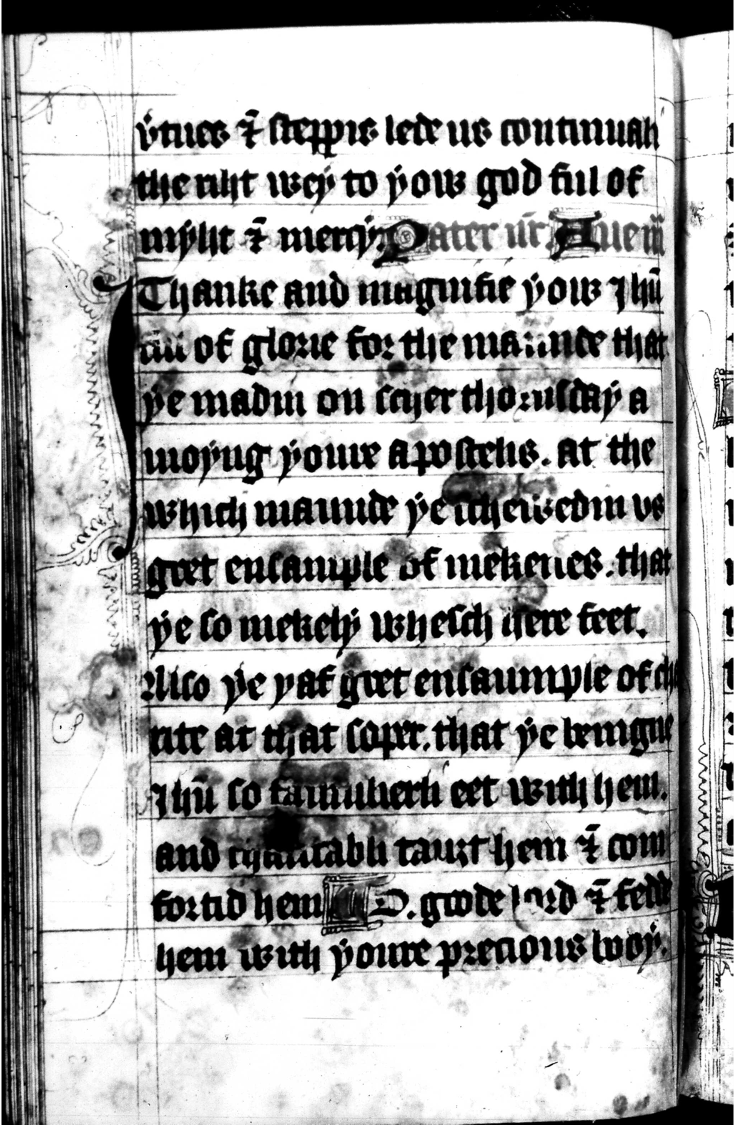 v̄tues ⁊ steppis lede us continuali
the riht wey to yow god ful of
myht ⁊ mercy. Pater nr̄. Aue m̄
I Thanke and magnifie yow Jhū
ful of glorie for the maunde that
ye madin on scher thorusday a
moyng youre apostelis. at the
which maunde ye scheweden us
gret ensample of mekenes. that
ye so mekely whesch feet.
Also ye yaf gret ensaumple of cha
rite at that soper. that ye benigne
Jhū so familierli eet with hem.
and charitabli tauȝt hem ⁊ com
fortid hem O. goode lord ⁊ fedde
hem with youre precious body.